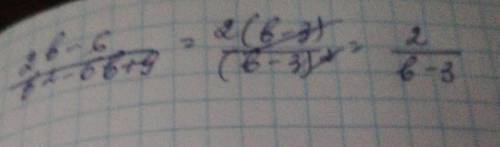 (2b-6)/(b²-6b+9) = (2(b-3))/((b-3)²) = 2/(b-3)